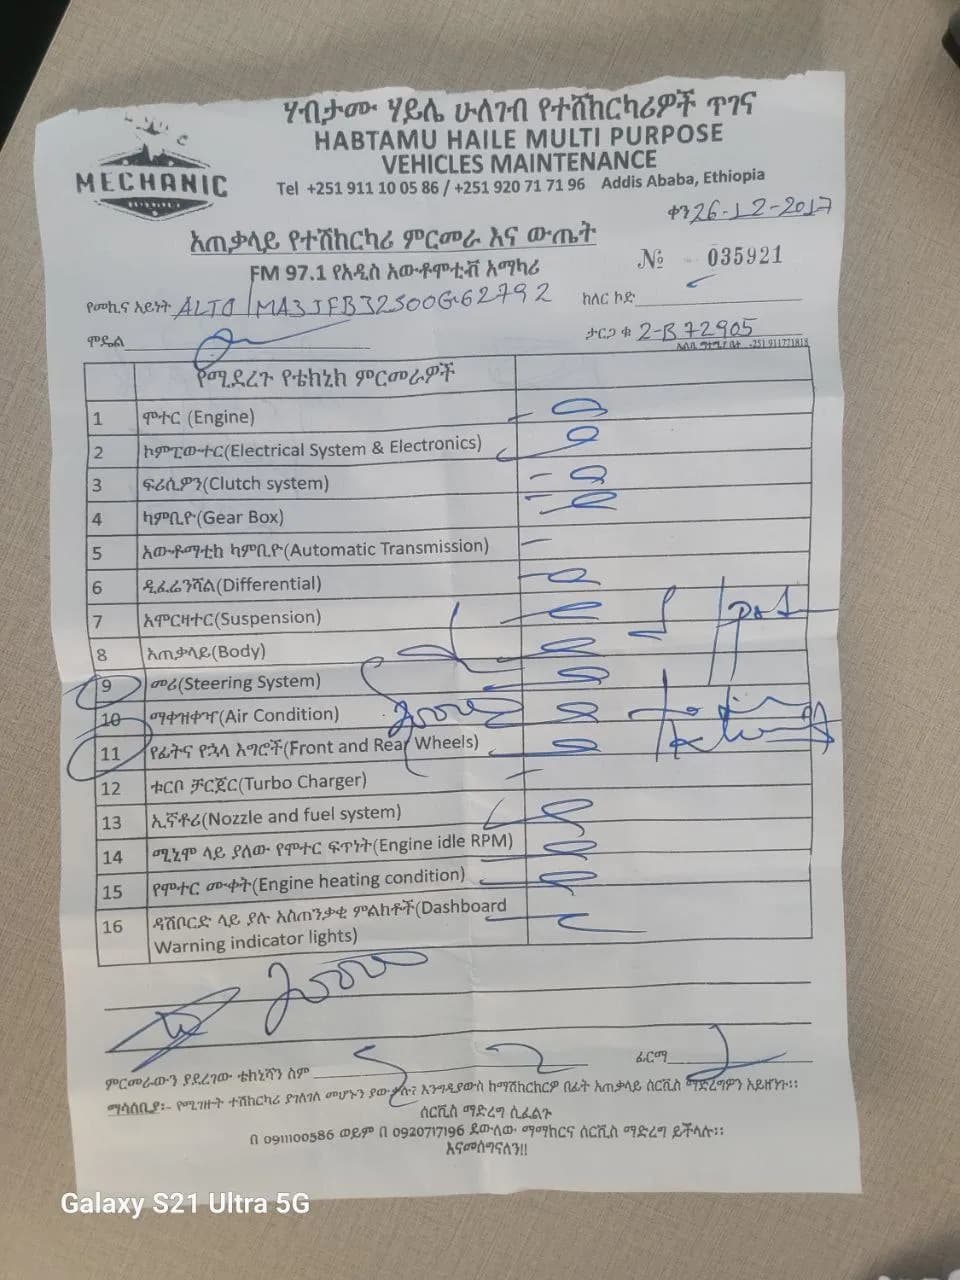 ሃብታሙ ሃይሌ ሁለገብ የተሽከርካሪዎች ጥገና
HABTAMU HAILE MULTI PURPOSE
VEHICLES MAINTENANCE
MECHANIC
Tel +251 911 10 05 86 / +251 920 71 71 96 Addis Ababa, Ethiopia
ቀን 26-12-2017
አጠቃላይ የተሽከርካሪ ምርመራ እና ውጤት
№ 035921
FM 97.1 የአዲስ አውቶሞቲቭ አማካሪ
የመኪና አይነት ALTO /MA3JFB32S00G62792 ከለር ኮድ
ሞዴል ታርጋ ቁ 2-B 72905
የሚደረጉ የቴክኒክ ምርመራዎች
1 ሞተር (Engine)
2 ኮምፒውተር(Electrical System & Electronics)
3 ፍሪሲዎን(Clutch system)
4 ካምቢዮ(Gear Box)
5 አውቶማቲክ ካምቢዮ(Automatic Transmission)
6 ዲፈሬንሻል(Differential)
7 አሞርዛተር(Suspension)
8 አጠቃላይ(Body)
9 መሪ(Steering System)
10 ማቀዝቀዣ(Air Condition)
11 የፊትና የኋላ እግሮች(Front and Rear Wheels)
12 ቱርቦ ቻርጀር(Turbo Charger)
13 ኢኛቶሪ(Nozzle and fuel system)
14 ሚኒሞ ላይ ያለው የሞተር ፍጥነት(Engine idle RPM)
15 የሞተር ሙቀት(Engine heating condition)
16 ዳሽቦርድ ላይ ያሉ አስጠንቃቂ ምልክቶች(Dashboard
Warning indicator lights)
ምርመራውን ያደረገው ቴክኒሻን ስም ፊርማ
ማሳሰቢያ፡- የሚገዙት ተሽከርካሪ ያገለገለ መሆኑን ያውቃሉ? እንግዲያውስ ከማሽከርከርዎ በፊት አጠቃላይ ሰርቪስ ማድረግዎን አይዘንጉ፡፡
ሰርቪስ ማድረግ ሲፈልጉ
በ 0911100586 ወይም በ 0920717196 ደውለው ማማከርና ሰርቪስ ማድረግ ይችላሉ፡፡
እናመሰግናለን!!
Galaxy S21 Ultra 5G